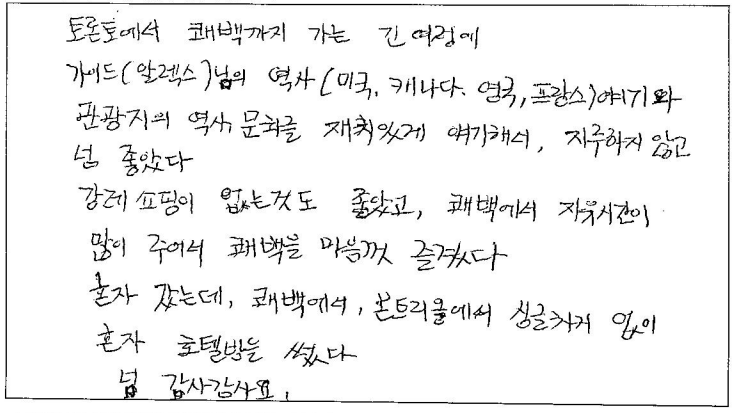 토론토에서 쾌백까지 가는 긴 여정에
가이드(알렉스)님의 역사(미국, 캐나다. 영국, 프랑스)얘기와
관광지의 역사, 문화를 재치있게 얘기해서, 지루하지 않고
넘 좋았다
강레 쇼핑이 없는것도 좋았고, 쾌백에서 자유시간이
많이 주어서 쾌백을 마음껏 즐겼다
혼자 갔는데, 쾌백에서, 몬트리올에서 싱글차지 없이
혼자 호텔방을 썼다
넘 감사감사요.